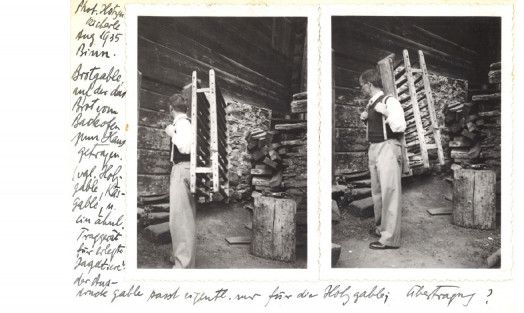 Phot.
Aug 1935
Binn.
Brotgable,
auf der das
Brot vom
Backofen
zum Haus
getragen.
(vgl. Holz-
gable, Käs-
gable, u.
ein ähnl.
Traggerät
für erlegte
Jagdtiere:
der Aus-
druck gable passt eigentl. nur für die Holzgable; Übertragung?